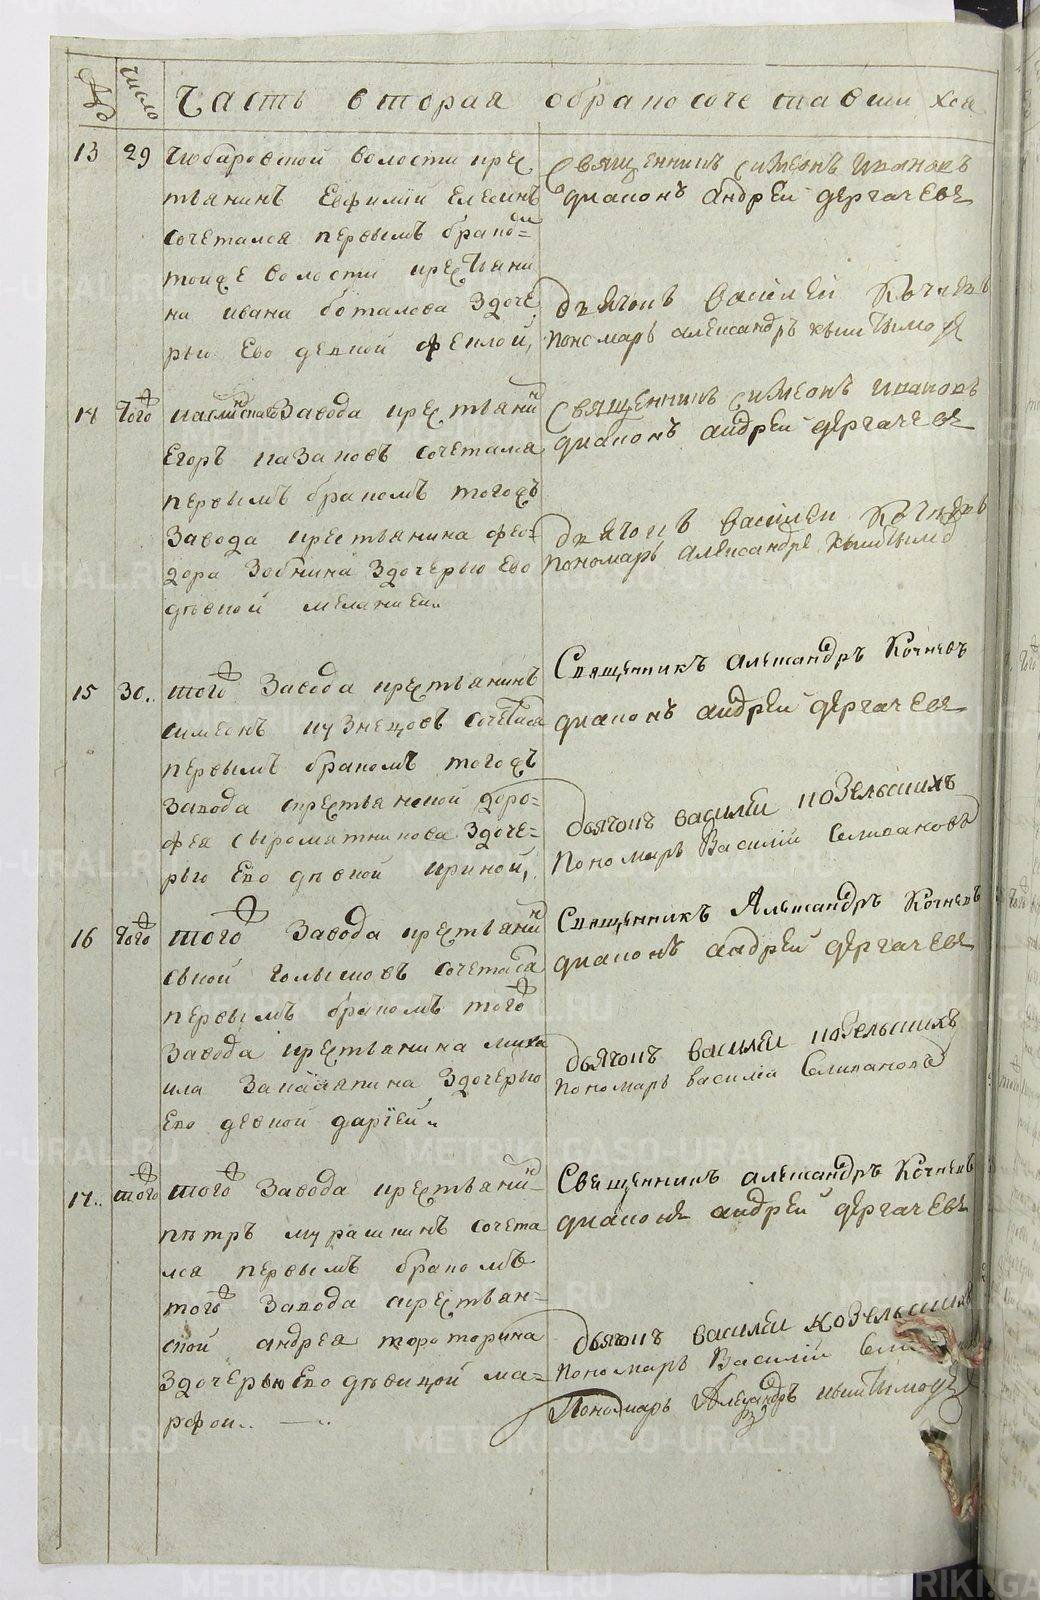 № число Часть вторая обраносочетавшихся
13 29 Чюбаровской волости крес
тьянинъ Евфимий Елесинъ
сочетался первымъ бракомъ
тоиже волости крестьяни
на ивана боталова здоче
рью Ево девкой феклой,
Священникъ Симеонъ Ивановъ
диаконъ Андрей Дергачевъ
дьячокъ Василей Кочневъ
пономарь александръ
14 Того Завода крестьянинъ
Егоръ Казаковъ сочетался
первымъ бракомъ тогожъ
Завода крестьянина фео-
дора Зобнина Здочерью Ево
девкой меланией..
Священникъ Симеонъ Ивановъ
диаконъ андрей дергачевъ
дьячокъ Василей Кочневъ
пономарь александръ
15 30.. того Завода крестьянинъ
симеонъ кузнецовъ сочетался
первымъ бракомъ тогожъ
завода крестьянской доро-
фея сыромятникова Здоче-
рью Ево девкой ириной,
Священникъ Александръ Кочневъ
диаконъ андрей дергачевъ
дьячокъ василий козельскихъ
Пономарь Василий Селивановъ
16 Того того Завода крестьянинъ
голышовъ сочетался
первымъ бракомъ того
Завода крестьянина миха
ила Здочерью
Ево девкой дарией..
Священникъ Александръ Кочневъ
диаконъ андрей дергачевъ
дьячокъ василий козельскихъ
Пономарь василий Селивановъ
17.. того того Завода крестьянинъ
петръ мурашкинъ сочета
лся первымъ бракомъ
того Завода крестьян-
ской андрея
Здочерью Ево девицой ма-
рфой..
Священникъ александръ Кочневъ
диаконъ андрей дергачевъ
дьячокъ василий козельскихъ
Пономарь Василий
Пономарь Александръ
METRIKI.GASO-URAL.RU